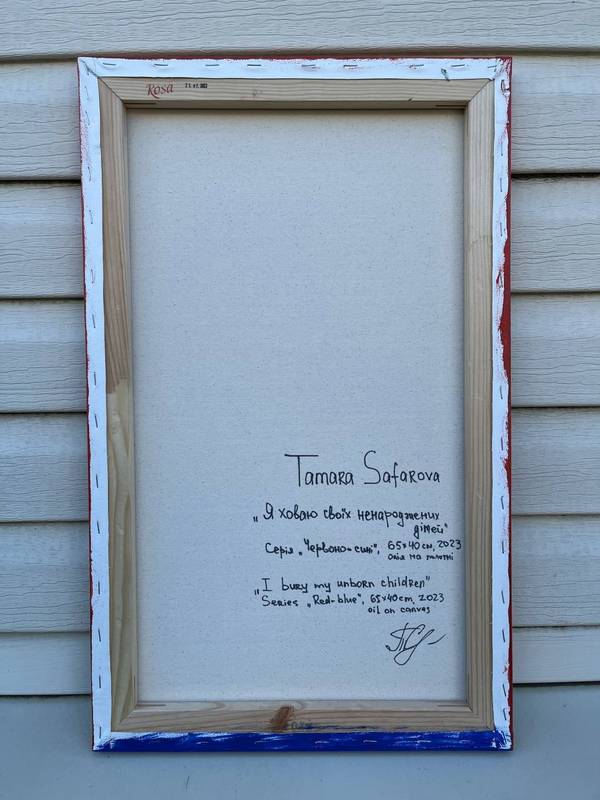 Rosa
Tamara Safarova
„Я ховаю своїх ненароджених
дітей"
Серія „Червоно-сині", 65×40см, 2023
олія на полотні
„I bury my unborn children"
Series „Red-blue", 65×40cm, 2023
oil on canvas